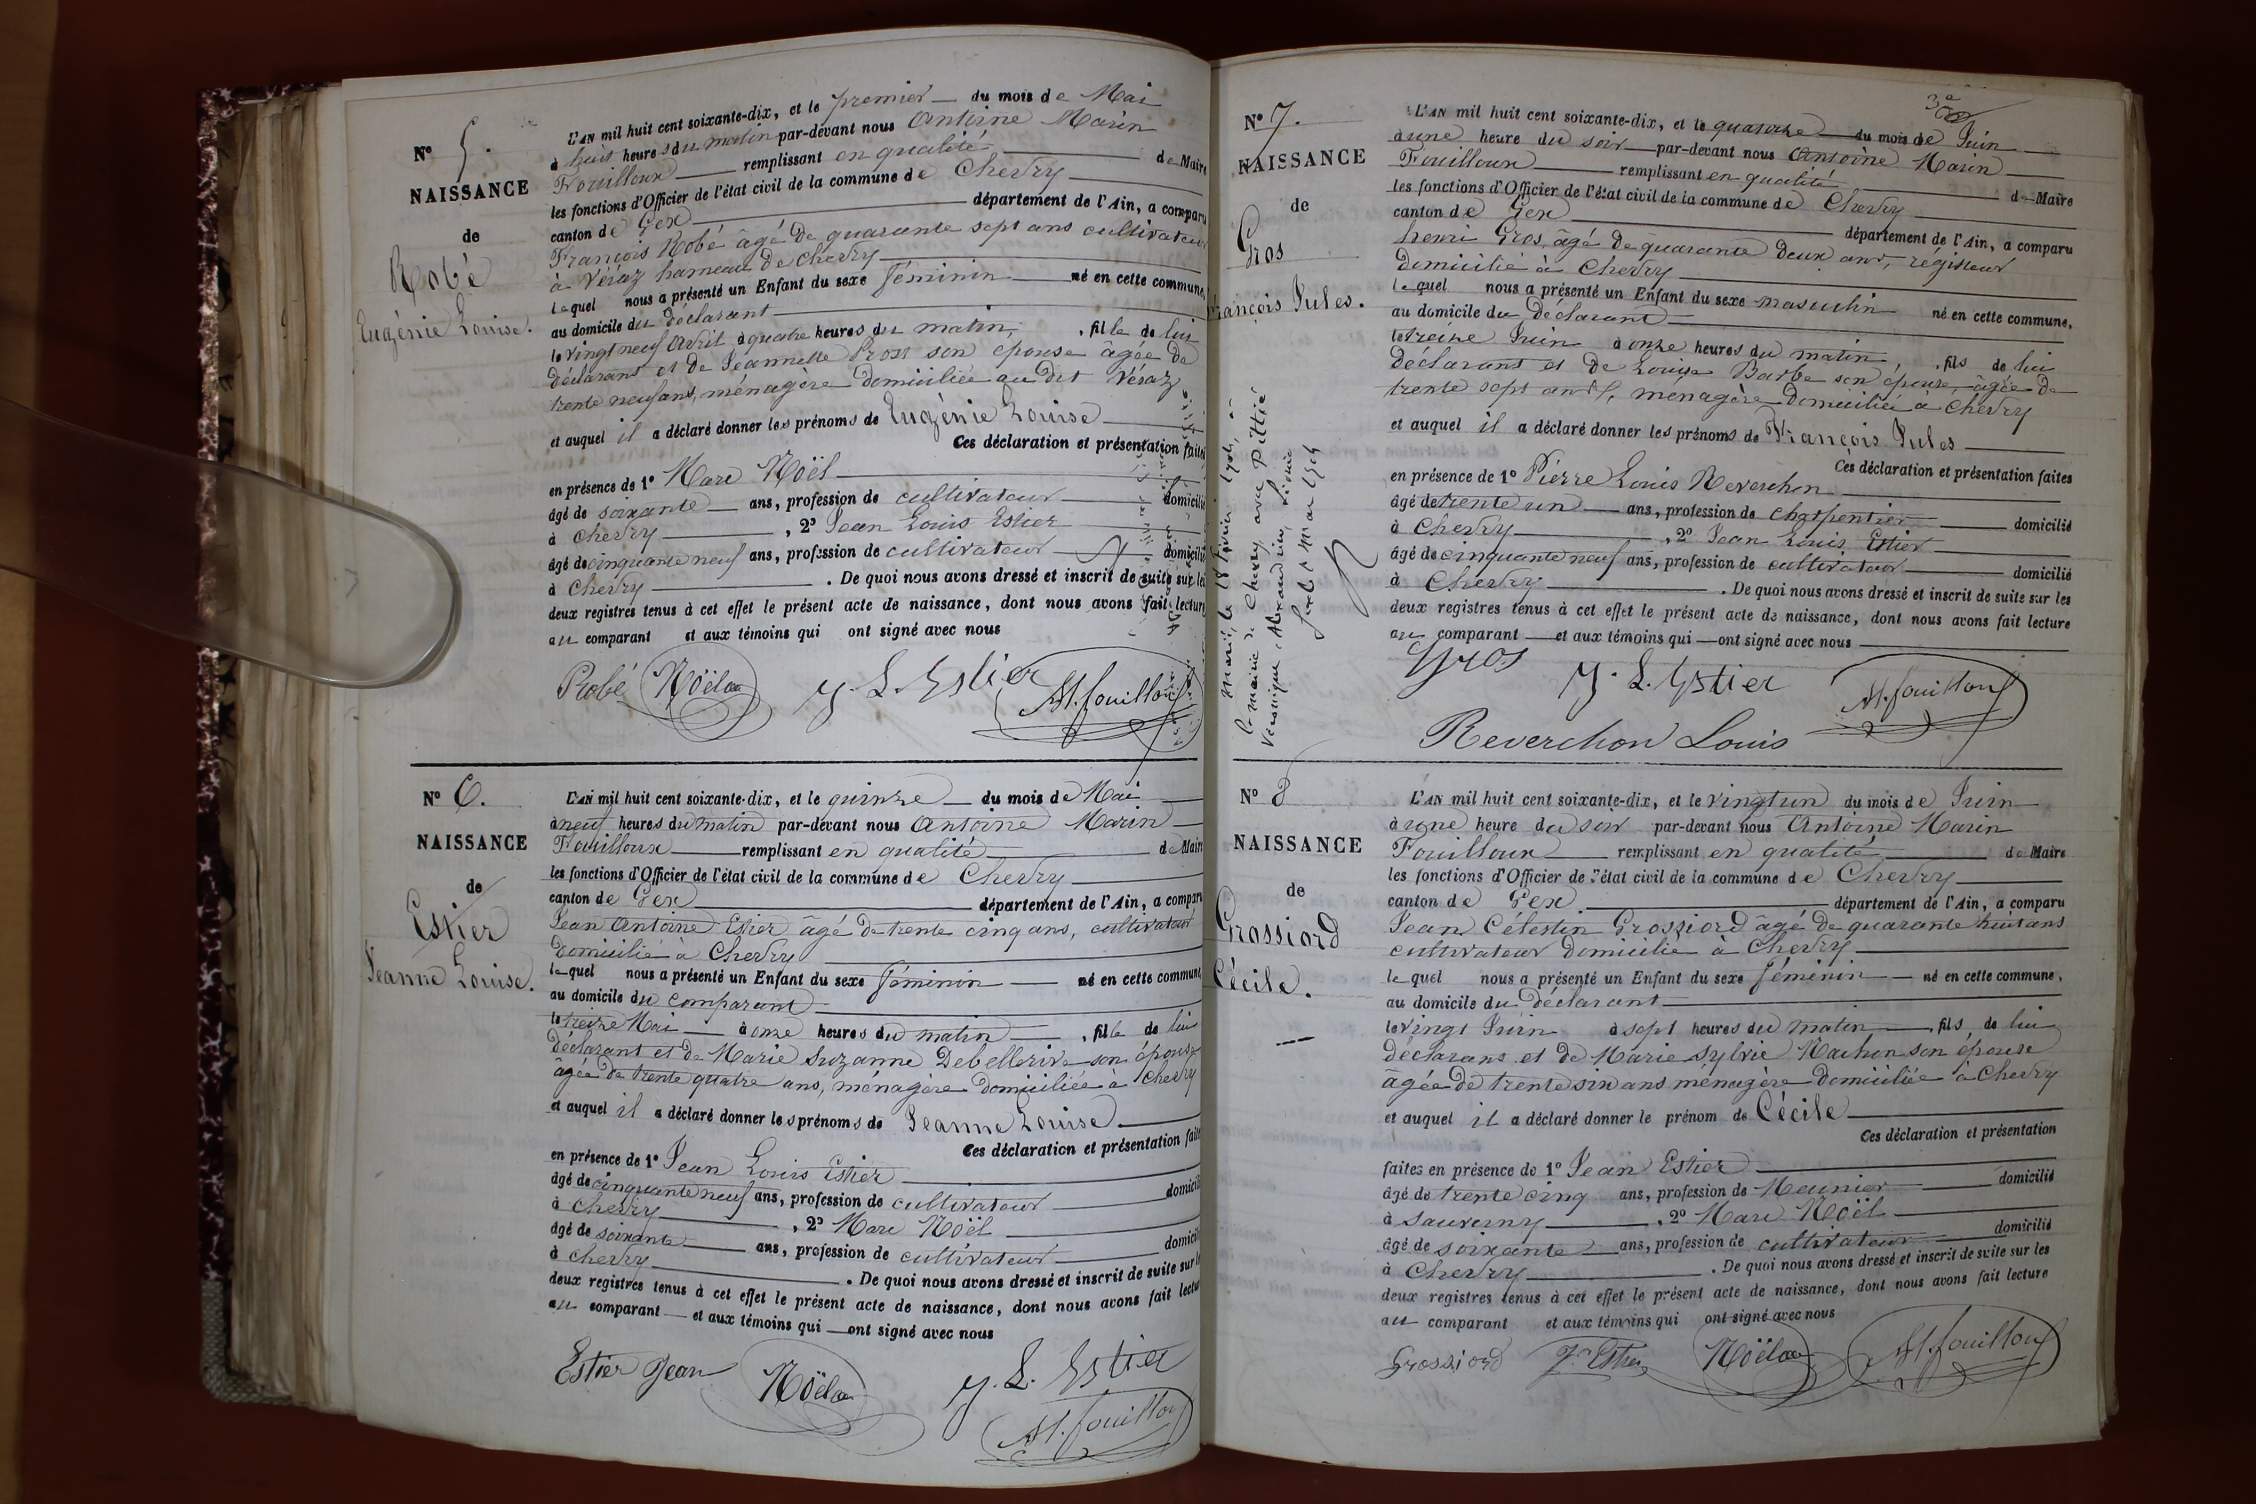 N° 5.
NAISSANCE
de
Robé
Eugénie Louise.
L'AN mil huit cent soixante-dix, et le premier du mois de Mai
à huit heures du matin par-devant nous Antoine Marin
Fouilloux remplissant en qualité de Maire
les fonctions d'Officier de l'état civil de la commune de Chevry
canton de Gex département de l'Ain, a comparu
François Robé âgé de quarante sept ans cultivateur
à Véraz hameau de Chevry
lequel nous a présenté un Enfant du sexe féminin né en cette commune,
au domicile du déclarant
le vingt neuf avril à quatre heures du matin, fille de lui
déclarant et de Jeannette Pross son épouse âgée de
trente neuf ans, ménagère domiciliée au dit Véraz
et auquel il a déclaré donner les prénoms de Eugénie Louise
Ces déclaration et présentation faites
en présence de 1° Marc Noël
âgé de soixante ans, profession de cultivateur domicilié
à Chevry, 2° Jean Louis Estier
âgé de cinquante neuf ans, profession de cultivateur domicilié
à Chevry. De quoi nous avons dressé et inscrit de suite sur les
deux registres tenus à cet effet le présent acte de naissance, dont nous avons fait lecture
au comparant et aux témoins qui ont signé avec nous
Robé Noël J. L. Estier M. fouilloux
N° 6.
NAISSANCE
de
Estier
Jeanne Louise.
L'AN mil huit cent soixante-dix, et le quinze du mois de Mai
à neuf heures du matin par-devant nous Antoine Marin
Fouilloux remplissant en qualité de Maire
les fonctions d'Officier de l'état civil de la commune de Chevry
canton de Gex département de l'Ain, a comparu
Jean Antoine Estier âgé de trente cinq ans, cultivateur
domicilié à Chevry
lequel nous a présenté un Enfant du sexe féminin né en cette commune,
au domicile du comparant
le treize Mai à onze heures du matin, fille de lui
déclarant et de Marie Suzanne Debellerive son épouse
âgée de trente quatre ans, ménagère domiciliée à Chevry
et auquel il a déclaré donner les prénoms de Jeanne Louise
Ces déclaration et présentation faites
en présence de 1° Jean Louis Estier
âgé de cinquante neuf ans, profession de cultivateur domicilié
à Chevry, 2° Marc Noël
âgé de soixante ans, profession de cultivateur domicilié
à Chevry. De quoi nous avons dressé et inscrit de suite sur les
deux registres tenus à cet effet le présent acte de naissance, dont nous avons fait lecture
au comparant et aux témoins qui ont signé avec nous
Estier Jean Noël J. L. Estier
M. fouilloux
N° 7.
NAISSANCE
de
Gros
François Jules.
Marié le 18 Février 1904, en
la mairie de Chevry, avec Pittié
Véronique Alexandrine
L'AN mil huit cent soixante-dix, et le quatorze du mois de Juin
à une heure du soir par-devant nous Antoine Marin
Fouilloux remplissant en qualité de Maire
les fonctions d'Officier de l'état civil de la commune de Chevry
canton de Gex département de l'Ain, a comparu
henri Gros, âgé de quarante deux ans, régisseur
domicilié à Chevry
lequel nous a présenté un Enfant du sexe masculin né en cette commune,
au domicile du déclarant
le treize Juin à onze heures du matin, fils de lui
déclarant et de Louise Barbe son épouse, âgée de
trente sept ans, ménagère domiciliée à Chevry
et auquel il a déclaré donner les prénoms de François Jules
Ces déclaration et présentation faites
en présence de 1° Pierre Louis Reverchon
âgé de trente un ans, profession de charpentier domicilié
à Chevry, 2° Jean Louis Estier
âgé de cinquante neuf ans, profession de cultivateur domicilié
à Chevry. De quoi nous avons dressé et inscrit de suite sur les
deux registres tenus à cet effet le présent acte de naissance, dont nous avons fait lecture
au comparant et aux témoins qui ont signé avec nous
Gros J. L. Estier M. fouilloux
Reverchon Louis
N° 8
NAISSANCE
de
Grossiord
Cécile.
L'AN mil huit cent soixante-dix, et le vingt un du mois de Juin
à une heure du soir par-devant nous Antoine Marin
Fouilloux remplissant en qualité de Maire
les fonctions d'Officier de l'état civil de la commune de Chevry
canton de Gex département de l'Ain, a comparu
Jean Célestin Grossiord âgé de quarante huit ans
cultivateur domicilié à Chevry
lequel nous a présenté un Enfant du sexe féminin né en cette commune,
au domicile du déclarant
le vingt Juin à sept heures du matin, fils de lui
déclarans et de Marie Sylvie Machon son épouse
âgée de trente six ans ménagère domiciliée à Chevry
et auquel il a déclaré donner le prénom de Cécile
Ces déclaration et présentation
faites en présence de 1° Jean Estier
âgé de trente cinq ans, profession de Meunier domicilié
à Sauverny, 2° Marc Noël
âgé de soixante ans, profession de cultivateur domicilié
à Chevry. De quoi nous avons dressé et inscrit de suite sur les
deux registres tenus à cet effet le présent acte de naissance, dont nous avons fait lecture
au comparant et aux témoins qui ont signé avec nous
Grossiord Jn Estier Noël M. fouilloux